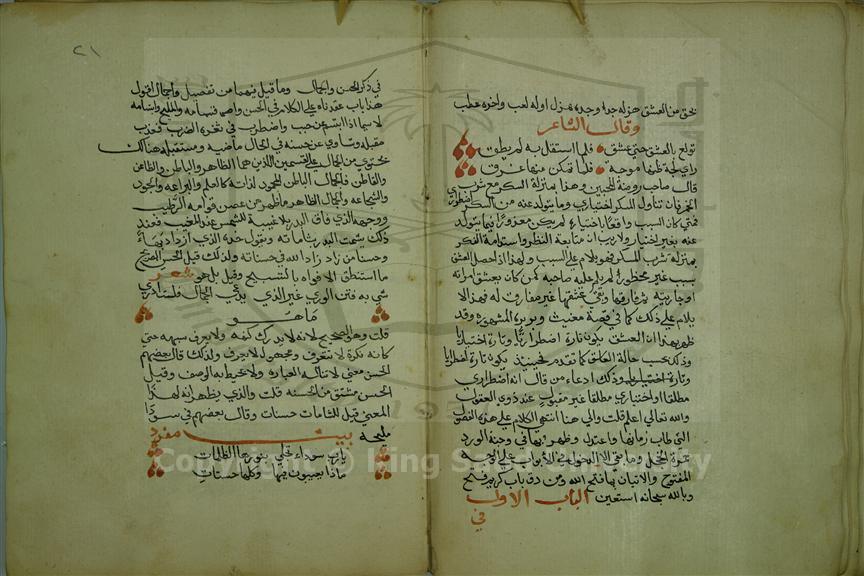 يخلق من العشق هزله جد وجده هزل اوله لعب واخره عطب
وقال الشاعر
تولع بالعشق حتى عشق فلما استقل به لم يطق
راى لجة ظنها موجة فلما تمكن منها غرق
قال صاحب روضة المحبين وهذا بمنزلة السكر مع شرب
الخمر فان تناول المسكر اختياري وما يتولد عنه من السكر اضطراري
فمتى كان السبب واقعا باختياره لم يكن معذورا فيما يتولد
عنه بغير اختياره ولا ريب ان متابعة النظر واستدامة الفكر
بمنزلة شرب المسكر فهو يلام على السبب ولهذا اذا حصل العشق
بسبب غير محظور لم يلم عليه صاحبه كمن كان يعشق امراته
او جاريته ثم فارقها وبقي عشقها غير مفارق له فهذا لا
يلام على ذلك كما في قصة مغيث وبريرة المشهورة وقد
ظهر بهذا ان العشق يكون تارة اضطراريا وتارة اختياريا
وذلك بحسب حالة العاشق كما تقدم فحينيذ يكون تارة اضطراريا
وتارة اختياريا وذلك ادعاء من قال انه اضطراري
مطلقا او اختياري مطلقا غير مقبول عند ذوي العقول
والله تعالى اعلم قلت والى هنا انتهى الكلام على هذه الفصول
التى طاب زمانها واعتدل وظهر بها في وجنة الورد
حمرة الخجل وما بقي الا الدخول في الأبواب على الوجه
المفتوح والاتيان بما فتح الله ومن دق باب كريم فتح
وبالله سبحانه استعين الباب الاول
في
٢١
في ذكر الحسن والجمال وما قيل فيهما من تفصيل واجمال اقول
هذا باب عقدناه على الكلام في الحسن واصل قسامه والمليح وابتسامه
لا سيما اذا ابتسم عن حبب واضطرب في ثغره الضرب فعذب
مقبله وتساوى عن حسنه في الحال ماضيه ومستقبله هنالك
يحتوي من الجمال على القسمين اللذين هما الظاهر والباطن والظاعن
والقاطن فالجمال الباطن المحمود لذاته كالعلم والبراعة والجود
والشجاعة والجمال الظاهر ما ظهر من غصن قوامه الرطيب
ووجهه الذي فاق البدر بلا غيبة للشمس عند المغيب فعند
ذلك يشمت البدر بشاماته ويقول خده الذي ازداد بهاء
وحسنا من زاد زاد الله في حسناته ولذلك قيل الحسن الصريح
ما استنطق الافواه بالتسبيح وقيل بل هو شعر
شي به فتن الورى غير الذي يدعى الجمال فلست ادري
ما هو
قلت وهو الصحيح لانه لا يدرك كنهه ولا يعرف شبهه حتى
كانه نكرة لا تتعرف ومجهول لا يعرف ولذلك قال بعضهم
الحسن معنى لا تناله العبارة ولا يحيط به الوصف وقيل
الحسن مشتق من الحسنه قلت والذي يظهر انه لهذا
المعنى قيل للشامات حسنات وقال بعضهم في سودا
مليحة بيت مفرد
يارب سوداء تجلى بنورها الظلمات
ماذا يعيبون فيها وكلها حسنات
Copyright © King Saud University